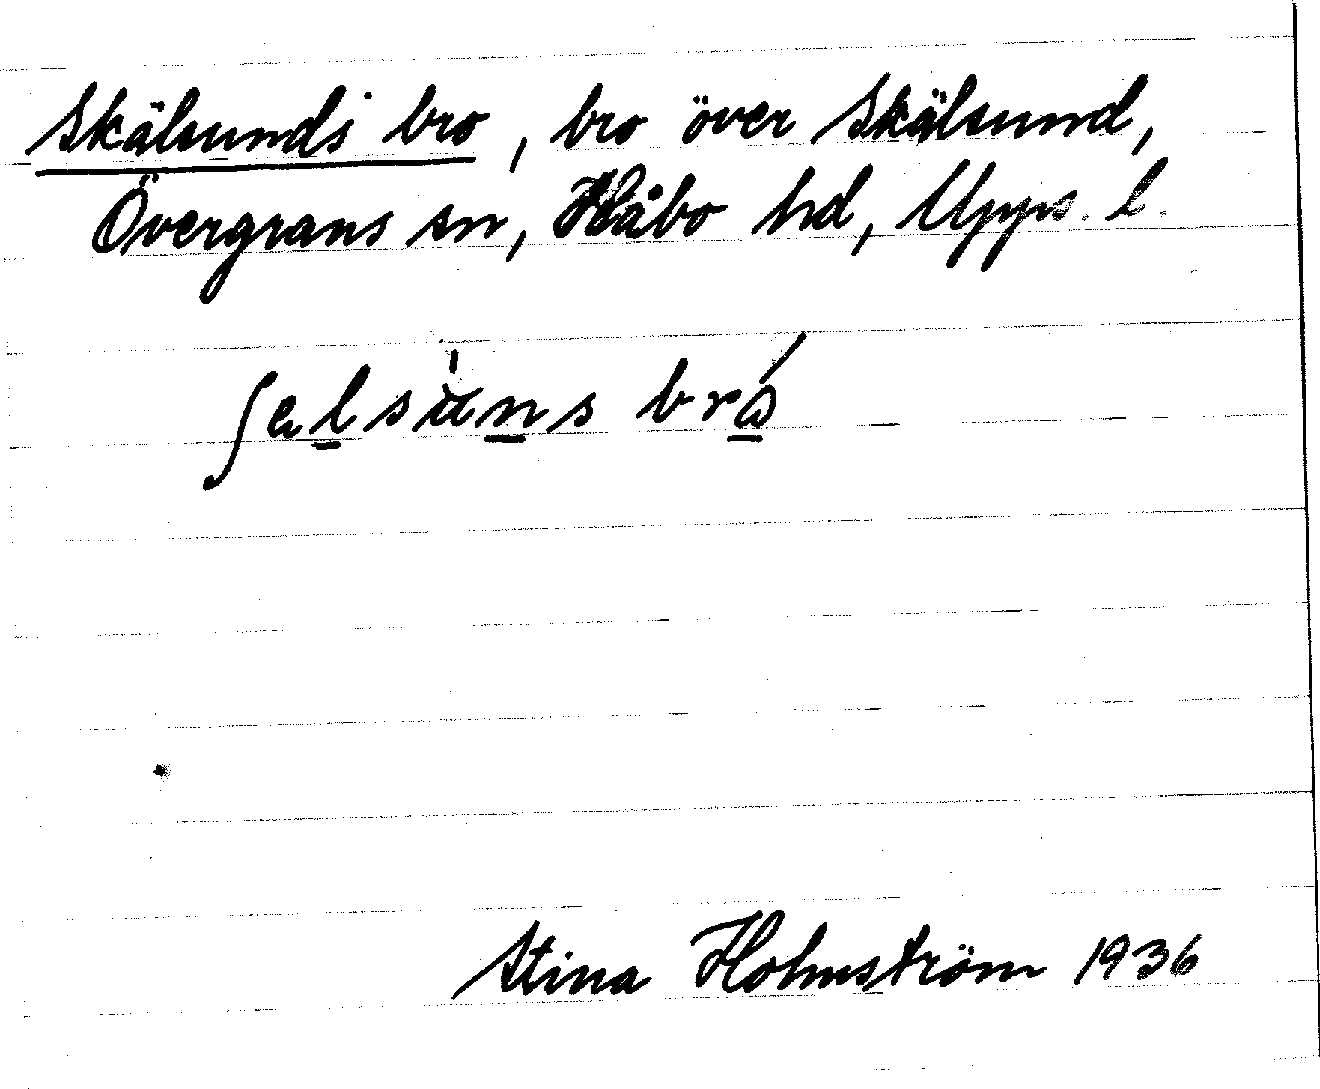 Skälsunds bro, bro över Skälsund,
Övergrans sn, Håbo hd, Upps. l.
bró
Stina Holmström 1936